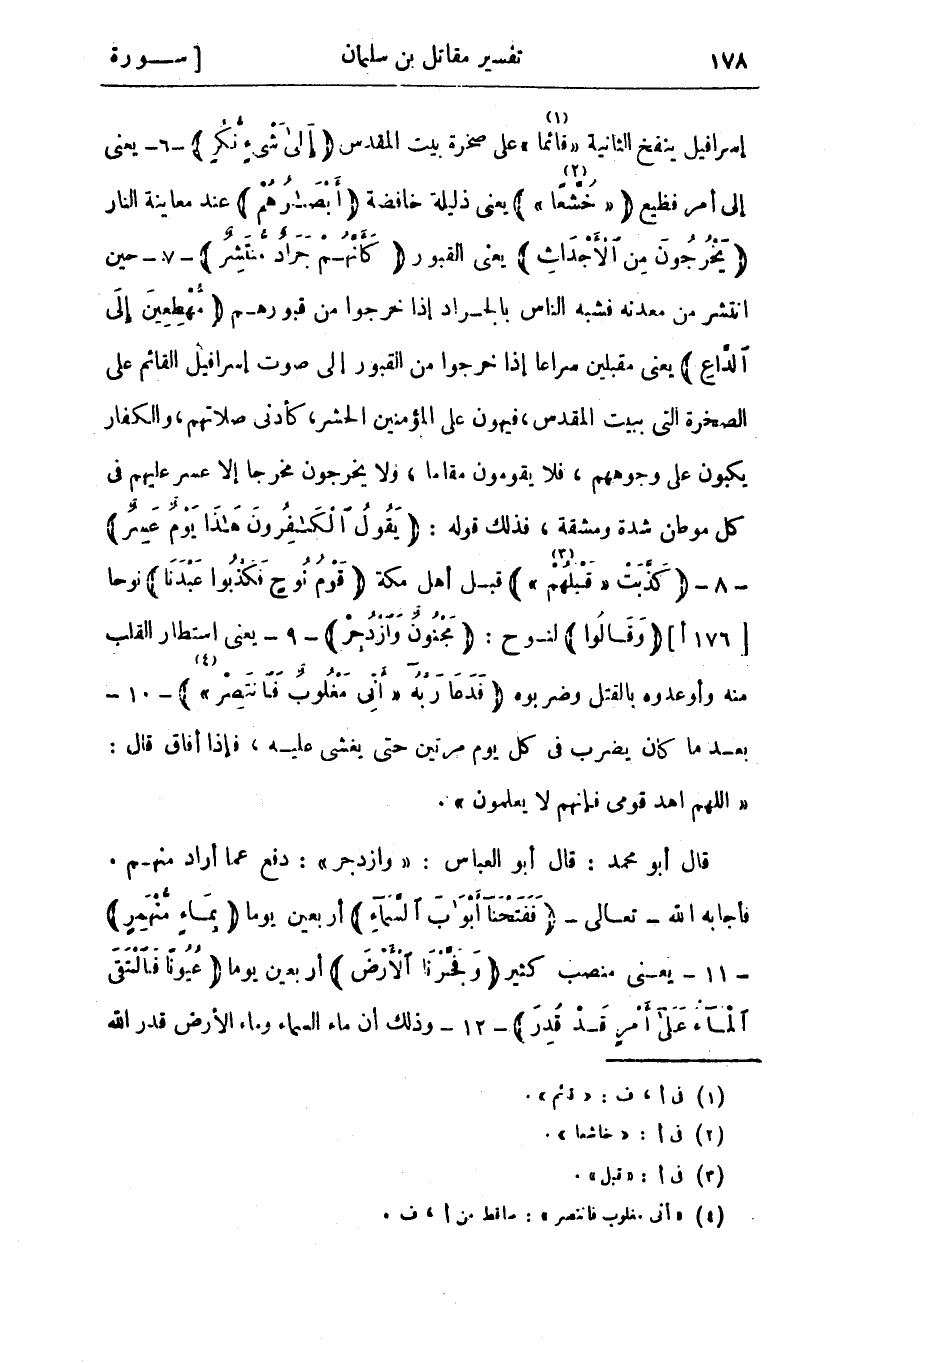 ١٧٨ تفسير مقاتل بن سليمان [ ســورة
إسرافيل ينفخ الثانية «قائما(١)» على صخرة بيت المقدس ﴿ إِلَىٰ شَىْءٍ نُّكُرٍ ﴾ -٦- يعنى
إلى أمر فظيع ﴿ « خُشَّعًا(٢) » ﴾ يعنى ذليلة خافضة ﴿ أَبْصَـٰرُهُمْ ﴾ عند معاينة النار
﴿ يَخْرُجُونَ مِنَ ٱلْأَجْدَاثِ ﴾ يعنى القبور ﴿ كَأَنَّهُـمْ جَرَادٌ مُّنتَشِرٌ ﴾ -٧- حين
انتشر من معدنه فشبه الناس بالجـراد إذا خرجوا من قبورهـم ﴿ مُّهْطِعِينَ إِلَى
ٱلدَّاعِ ﴾ يعنى مقبلين سراعا إذا خرجوا من القبور إلى صوت إسرافيل القائم على
الصخرة التى ببيت المقدس، فيهون على المؤمنين الحشر، كأدنى صلاتهم، والكفار
يكبون على وجوههم ، فلا يقومون مقاما ، ولا يخرجون مخرجا إلا عسر عليهم فى
كل موطن شدة ومشقة ، فذلك قوله : ﴿ يَقُولُ ٱلْكَـٰفِرُونَ هَـٰذَا يَوْمٌ عَسِرٌ ﴾
-٨- ﴿ كَذَّبَتْ « قَبْلَهُمْ(٣) » ﴾ قبـل أهل مكة ﴿ قَوْمُ نُوحٍ فَكَذَّبُوا عَبْدَنَا ﴾ نوحا
[ ١٧٦ أ ] ﴿ وَقَـالُوا ﴾ لنـوح : ﴿ مَجْنُونٌ وَٱزْدُجِرَ ﴾ -٩- يعنى استطار القلب
منه وأوعدوه بالقتل وضربوه ﴿ فَدَعَا رَبَّهُۥٓ « أَنِّى مَغْلُوبٌ فَٱنتَصِرْ(٤) » ﴾ -١٠-
بعـد ما كان يضرب فى كل يوم مرتين حتى يغشى عليـه ، فإذا أفاق قال :
« اللهم اهد قومى فإنهم لا يعلمون » .
قال أبو محمد : قال أبو العباس : « وازدجر » : دفع عما أراد منهـم .
فأجابه الله - تعـالى - ﴿ فَفَتَحْنَآ أَبْوَٰبَ ٱلسَّمَآءِ ﴾ أربعين يوما ﴿ بِمَـاءٍ مُّنْهَمِرٍ ﴾
-١١- يعـنى منصب كثير ﴿ وَفَجَّرْنَا ٱلْأَرْضَ ﴾ أربعين يوما ﴿ عُيُونًا فَٱلْتَقَى
ٱلْمَـآءُ عَلَىٰٓ أَمْرٍ قَـدْ قُدِرَ ﴾ -١٢- وذلك أن ماء السماء وماء الأرض قدر الله
(١) فى أ ، ف : « قائم » .
(٢) فى أ : « خاشعا » .
(٣) فى أ : « قبل » .
(٤) « أنى مغلوب فانتصر » : ساقط من أ ، ف .